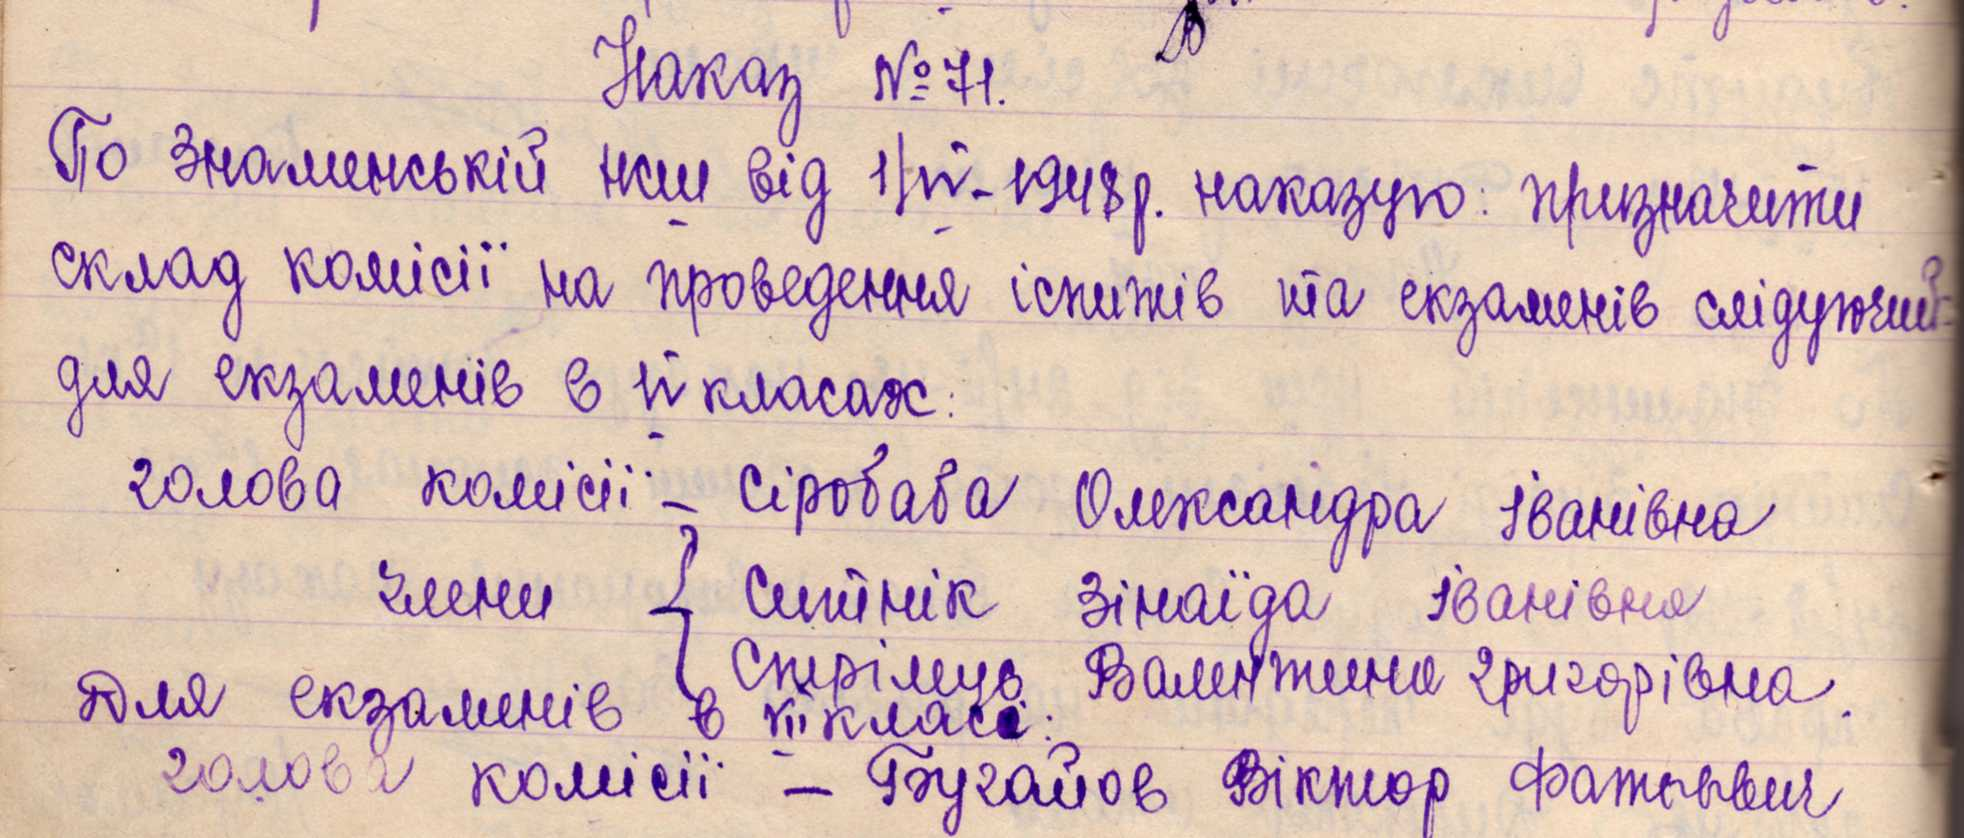 Наказ № 71.
По Знаменській нсш від 1/IV-1948 р. наказую: призначити
склад комісії на проведення іспитів та екзаменів слідуючий:
для екзаменів в IV класах:
голова комісії – Сіробаба Олександра Іванівна
члени { Ситнік Зінаїда Іванівна
Стрілець Валентина Григорівна.
Для екзаменів в VII класі:
голова комісії – Бугайов Віктор